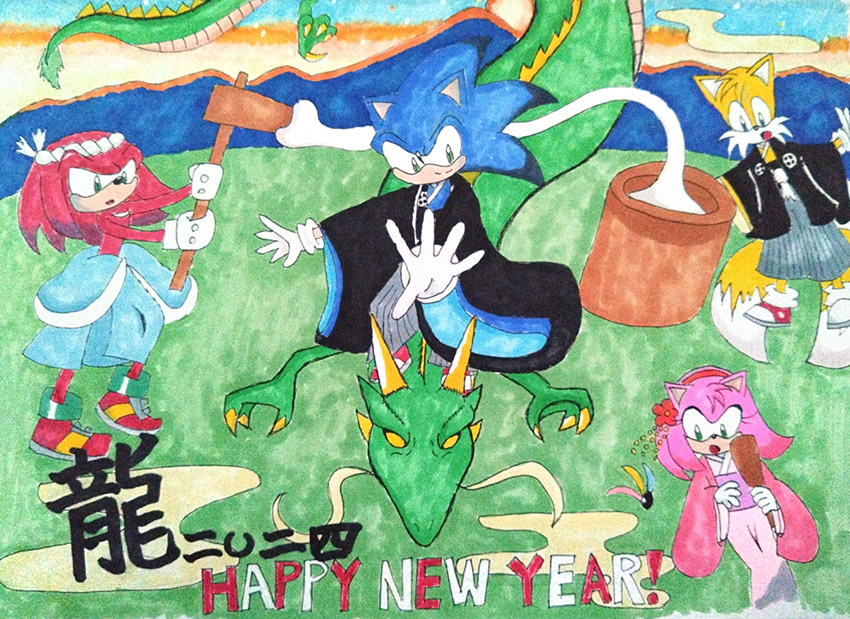 龍二〇二四
HAPPY NEW YEAR!